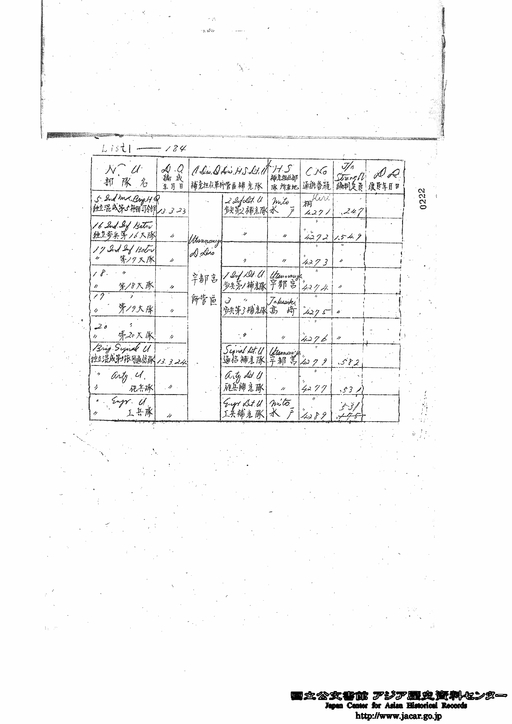 List1 — 184
N. U
部隊名
D.O
編成年月日
H S
C No
通称番号
T/O Strength
編制定員
D D
復員年月日
5 Ind Mix Brig HQ
独立混成第5旅団司令部
13.3.23
2 Inf Dt U
歩兵第2補充隊
Mito
水戸
桐
4271
.247
16 Ind Inf Batn
独立歩兵第16大隊
〃
〃
〃
4272
1.549
17 Ind Inf Batn
〃 第17大隊
〃
Utsunomiya
D Dis
宇都宮
所管區
〃
〃
4273
〃
18. 〃
〃 第18大隊
〃
1 Inf Dt U
歩兵第1補充隊
Utsunomiya
宇都宮
4274
〃
19 〃
〃 第19大隊
〃
2 〃
歩兵第3補充隊
Takasaki
高崎
4275
〃
20 〃
〃 第20大隊
〃
〃
〃
4276
〃
Brig Signal U
13.3.24
Signal Dt U
通信補充隊
Utsunomiya
宇都宮
4279
.582
〃 Arty U.
〃 砲兵隊
〃
Arty Dt U
砲兵補充隊
〃
4277
.531
〃 Engr U
〃 工兵隊
〃
Engr Dt U
工兵補充隊
Mito
水戸
4289
531
175
0222
国立公文書館 アジア歴史資料センター
Japan Center for Asian Historical Records
http://www.jacar.go.jp